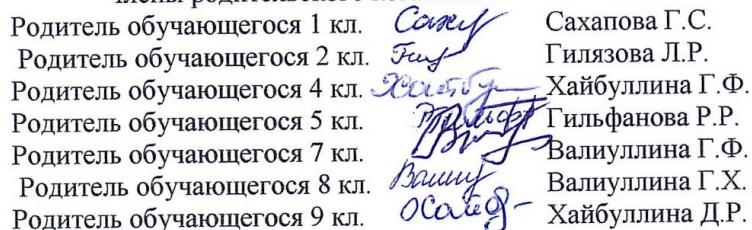 Родитель обучающегося 1 кл. Сахапова Г.С.
Родитель обучающегося 2 кл. Гилязова Л.Р.
Родитель обучающегося 4 кл. Хайбуллина Г.Ф.
Родитель обучающегося 5 кл. Гильфанова Р.Р.
Родитель обучающегося 7 кл. Валиуллина Г.Ф.
Родитель обучающегося 8 кл. Валиуллина Г.Х.
Родитель обучающегося 9 кл. Хайбуллина Д.Р.